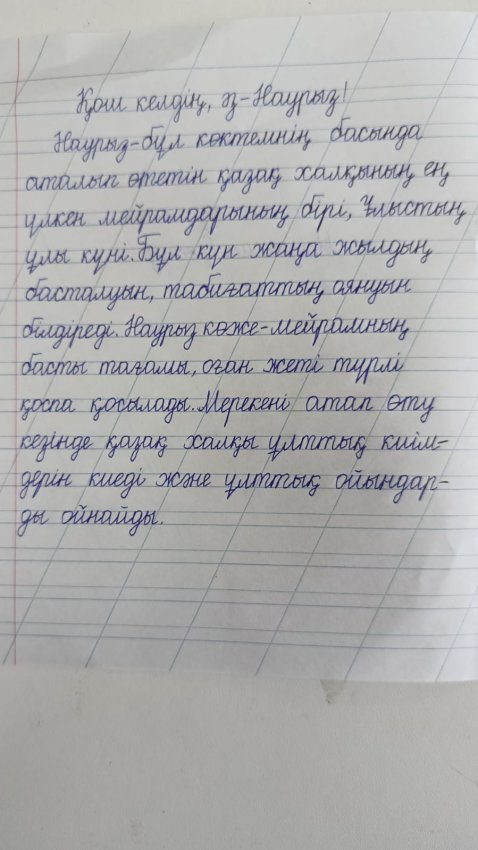 Қош келдің, әз-Наурыз!
Наурыз-бұл көктемнің басында
аталып өтетін қазақ халқының ең
үлкен мейрамдарының бірі, Ұлыстың
ұлы күні. Бұл күн жаңа жылдың
басталуын, табиғаттың оянуын
білдіреді. Наурыз көже-мейрамның
басты тағамы, оған жеті түрлі
қоспа қосылады. Мерекені атап өту
кезінде қазақ халқы ұлттық киім-
дерін киеді және ұлттық ойындар-
ды ойнайды.